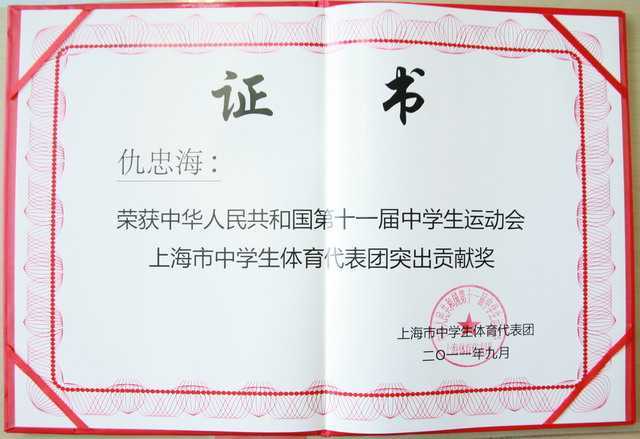 证书
仇忠海：
荣获中华人民共和国第十一届中学生运动会
上海市中学生体育代表团突出贡献奖
上海市中学生体育代表团
二〇一一年九月